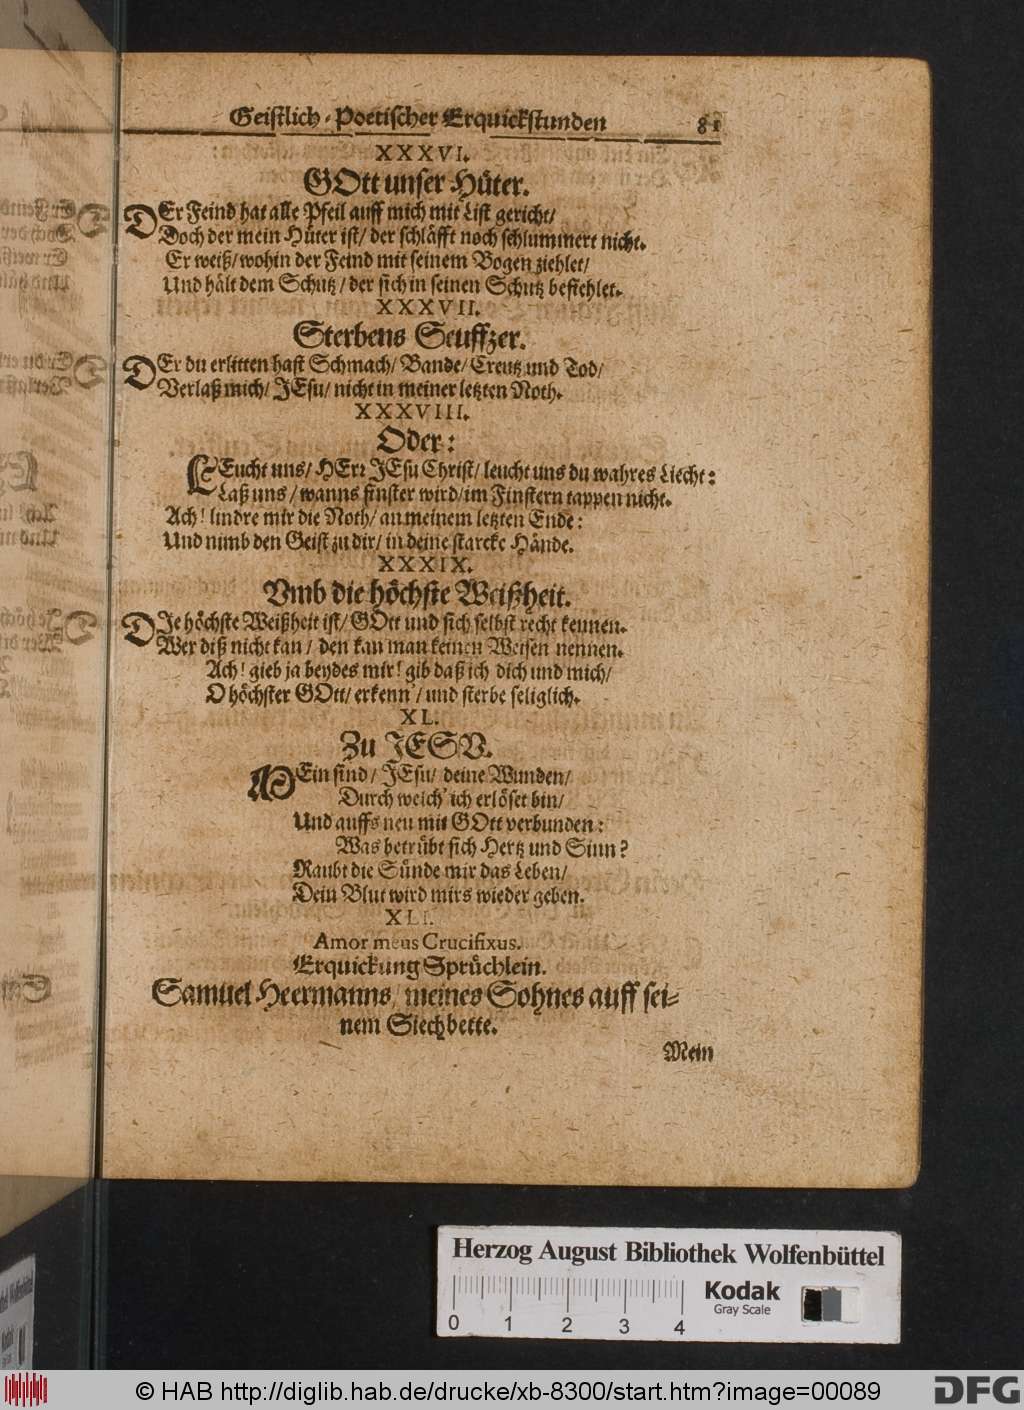 Geistlich-Poetischer Erquickstunden 81
XXXVI.
GOtt unser Hüter.
DEr Feind hat alle Pfeil auff mich mit List gericht/
Doch der mein Hüter ist/ der schläfft noch schlummert nicht.
Er weiß/ wohin der Feind mit seinem Bogen ziehlet/
Und hält dem Schutz/ der sich in seinen Schutz befiehlet.
XXXVII.
Sterbens Seuffzer.
DEr du erlitten hast Schmach/ Bande/ Creutz und Tod/
Verlaß mich/ JEsu/ nicht in meiner letzten Noth.
XXXVIII.
Oder:
LEucht uns/ HErr JEsu Christ/ leucht uns du wahres Liecht:
Laß uns/ wanns finster wird/ im Finstern tappen nicht.
Ach! lindre mir die Noth/ an meinem letzten Ende:
Und nimb den Geist zu dir/ in deine starcke Hände.
XXXIX.
Vmb die höchste Weißheit.
DIe höchste Weißheit ist/ GOtt und sich selbst recht kennen.
Wer diß nicht kan/ den kan man keinen Weisen nennen.
Ach! gieb ja beydes mir! gib daß ich dich und mich/
O höchster GOtt/ erkenn'/ und sterbe seliglich.
XL.
Zu JESV.
MEin sind/ JEsu/ deine Wunden/
Durch welch' ich erlöset bin/
Und auffs neu mit GOtt verbunden:
Was betrübt sich Hertz und Sinn?
Raubt die Sünde mir das Leben/
Dein Blut wird mirs wieder geben.
XLI.
Amor meus Crucifixus.
Erquickung Sprüchlein.
Samuel Heermanns/ meines Sohnes auff sei-
nem Siechbette.
Mein
Herzog August Bibliothek Wolfenbüttel
Kodak
Gray Scale
0 1 2 3 4
© HAB http://diglib.hab.de/drucke/xb-8300/start.htm?image=00089
DFG